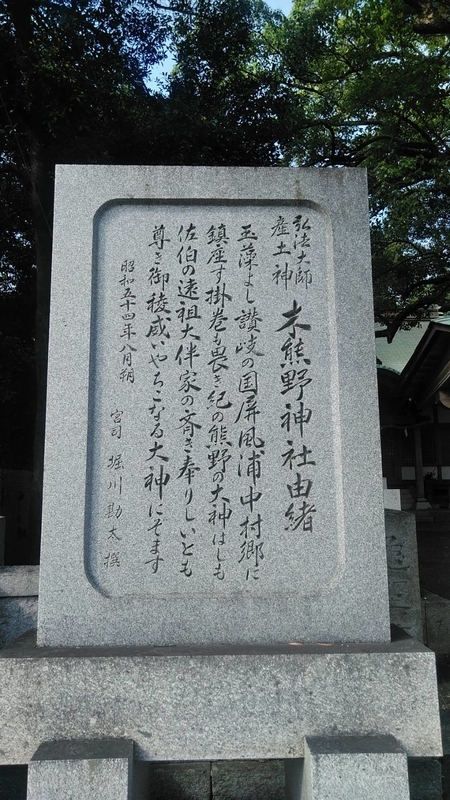 弘法大師
産土神
木熊野神社由緒
玉藻よし讃岐の国屏風浦中村郷に
鎮座す掛巻も畏き紀の熊野の大神はしも
佐伯の遠祖大伴家の斎き奉りしいとも
尊き御稜威いやちこなる大神にぞます
昭和五十四年八月朔
宮司 堀川勘太 撰